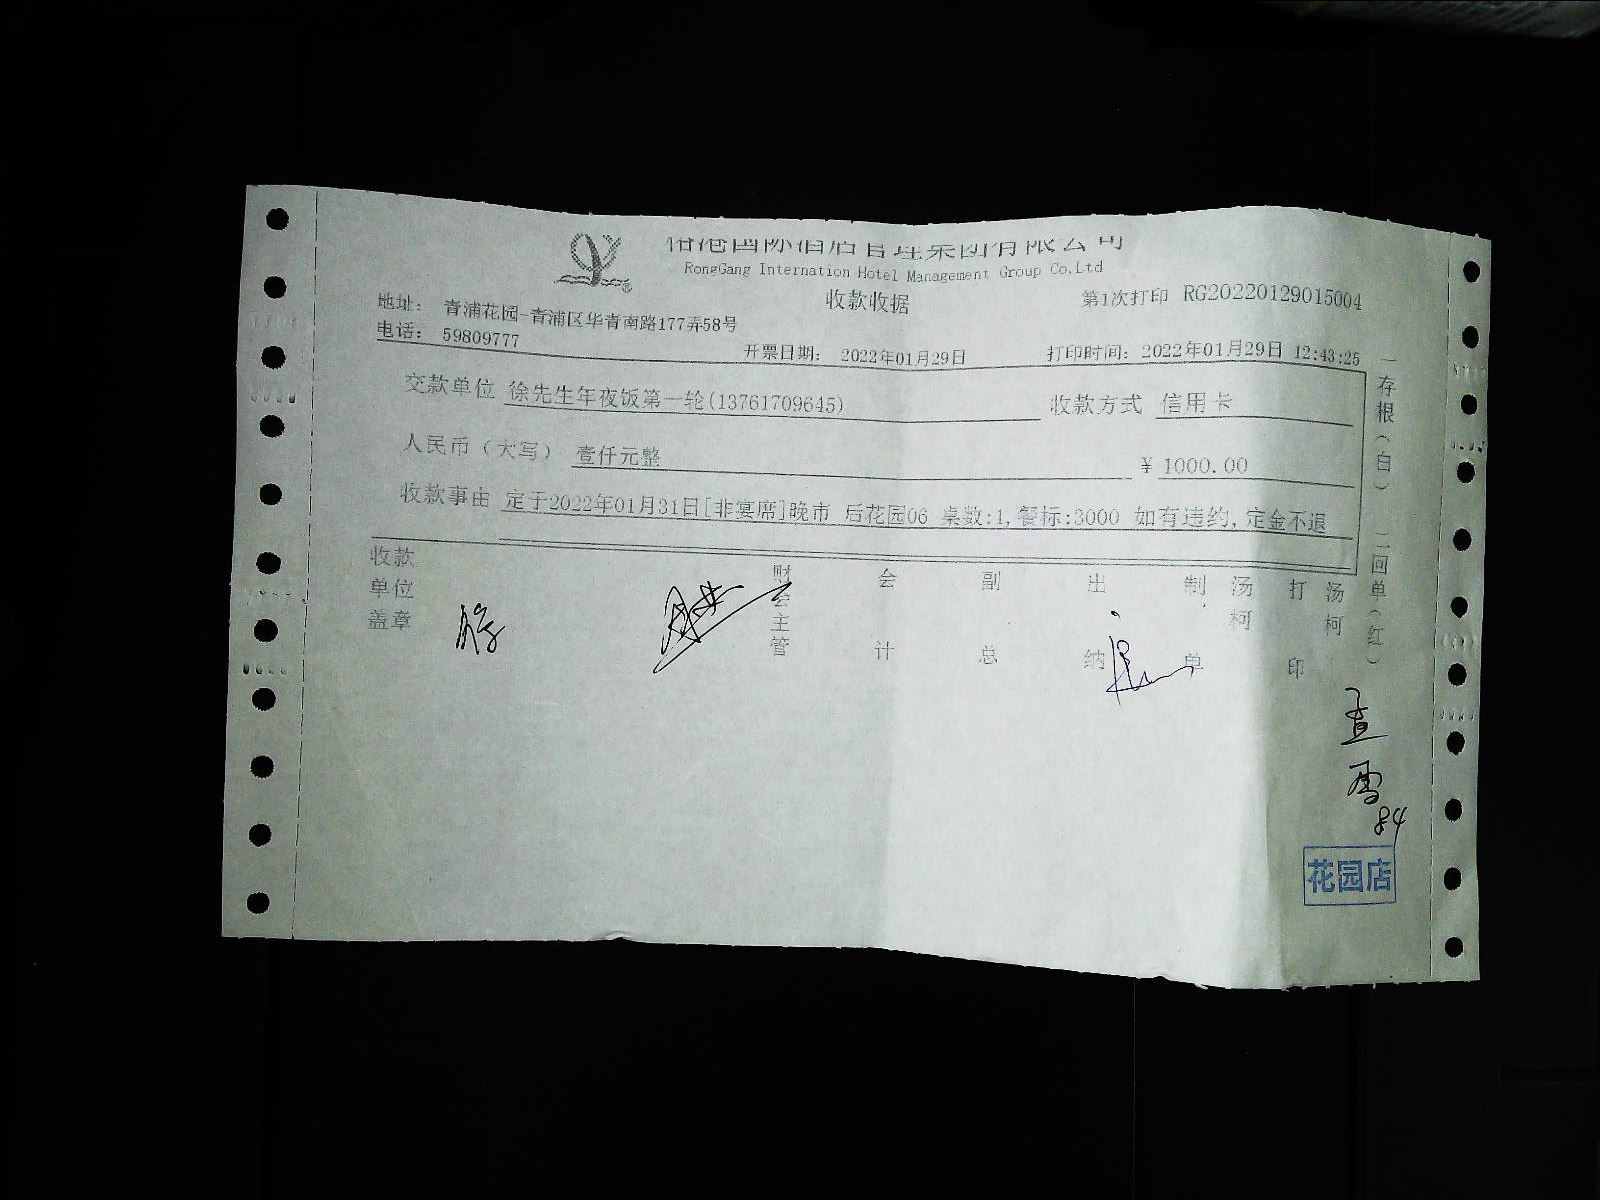 港国际酒店管理集团有限公司
RongGang Internation Hotel Management Group Co.Ltd
收款收据
第1次打印 RG20220129015004
地址： 青浦花园-青浦区华青南路177弄58号
电话： 59809777
开票日期： 2022年01月29日
打印时间：2022年01月29日 12:43:25
交款单位 徐先生年夜饭第一轮(13761709645)
收款方式 信用卡
人民币（大写） 壹仟元整
¥ 1000.00
收款事由 定于2022年01月31日[非宴席]晚市 后花园06 桌数:1,餐标:3000 如有违约,定金不退
收款单位盖章
财会主管
会计
副总
出纳
制单
汤柯
打印
汤柯
一存根（白） 二回单（红）
84
花园店